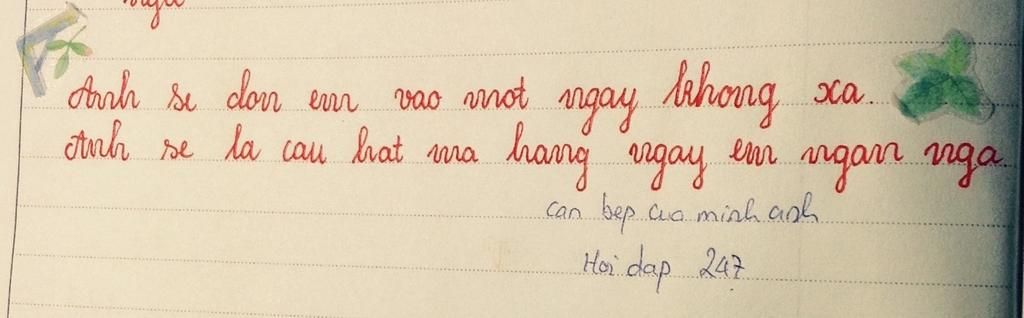 nga
Anh se don em vao mot ngay khong xa.
Anh se la cau hat ma hang ngay em ngan nga
can bep cua minh anh
Hoi dap 247